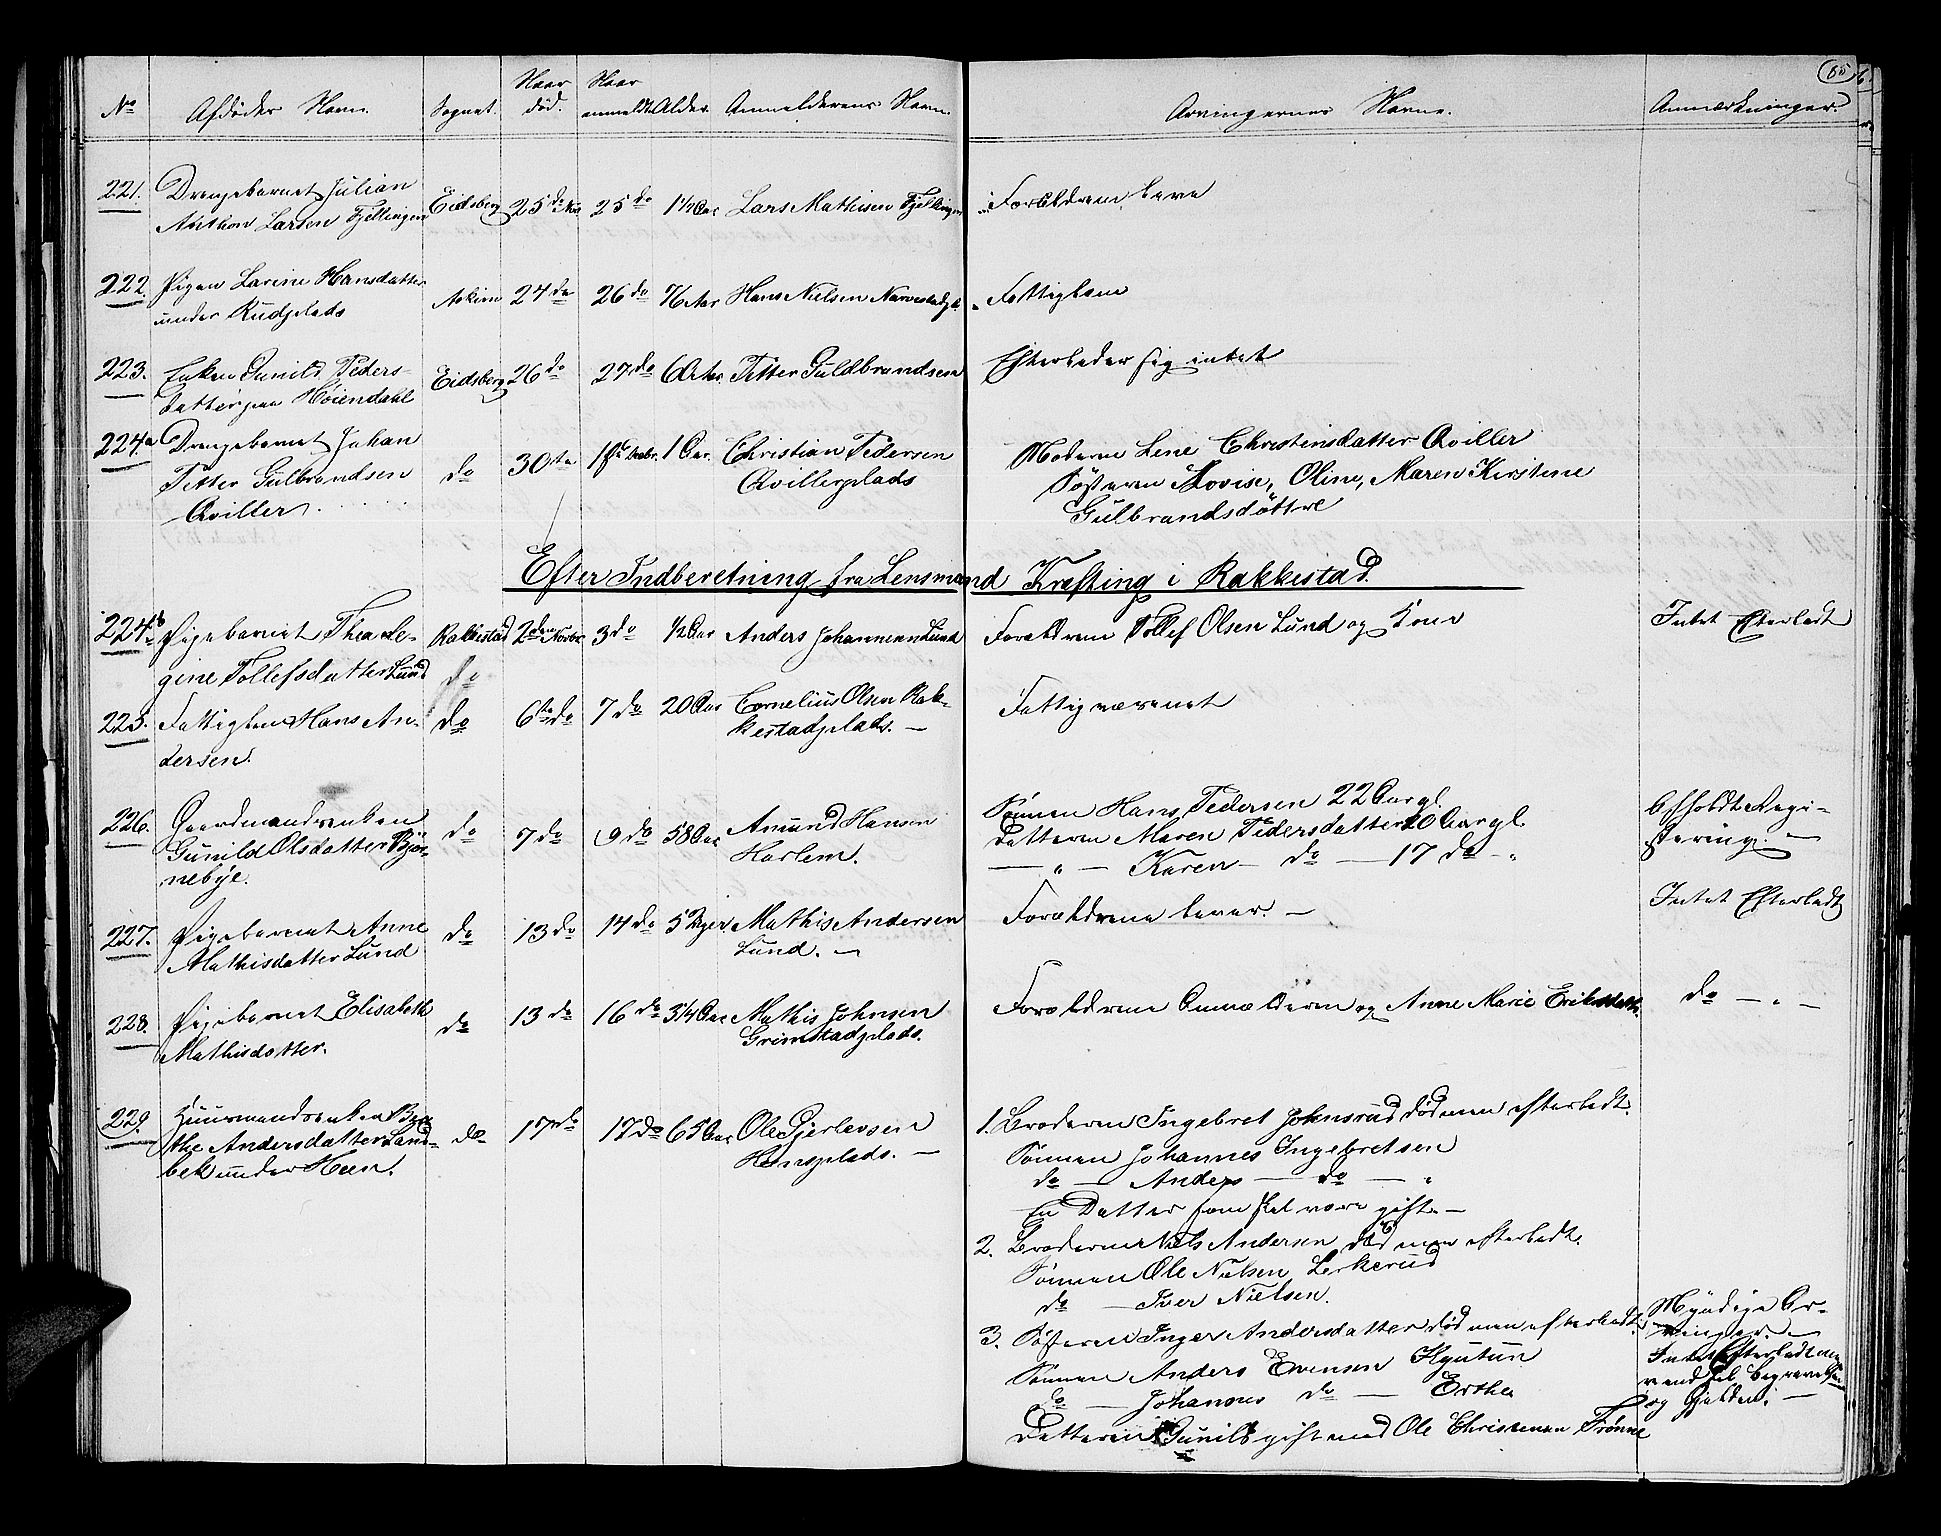 65
No
Afdødes Navn.
Sognet.
Naar død.
Naar anmeldt.
Alder.
Anmelderens Navn.
Arvingernes Navne.
Anmærkninger.
221. Drengebarnet Julian Eidsberg 25 do Nov 25 do 1½ Aar Lars Mathisen Fjellingen Forældrene leve
Anthon Larsen Fjellingen
222. Pigen Larine Hansdatter Askim 24 do 26 do Hans Nielsen Fattiglem
under Rudplads
223. Enken Gunild Peders- Eidsberg 26 do 27 do Petter Guldbrandsen Efterlader sig intet
datter paa Høiendahl
224a Drengebarnet Johan do 30te 1ste Decbr. 1 Aar. Christian Pedersen Moderen Lene Christensdatter Qviller
Petter Gulbrandsen Qvillerplads Søsteren Lovise, Oline, Maren Kirstine
Qviller. Gulbrandsdøttre
Efter Indberetning fra Lensmand Krefting i Rakkestad.
224b Pigebarnet Thea Le- Rakkestad 2den Novbr 3 do ½ Aar Anders Johannesen Lund Forældrene Tollef Olsen Lund og Kone Intet Efterladt
gine Tollefsdatter Lund do
225. Fattiglem Hans An- do 6te do 7 do 20 Aar Cornelius Olsen Rak- Fattigvæsenet
dersen. kestadplads. —
226. Gaardmandsenken do 7 do 9 do 58 Aar Amund Hansen Sønnen Hans Pedersen 22 Aar gl. Afholdt Regi-
Gunild Olsdatter Bjør- Harlem. Datteren Maren Pedersdatter 20 Aar gl. stering. —
nebye. — " — Karen — do — 17 do — "
227. Pigebarnet Anne do 13 do 14 do 5 Uger Mathis Andersen Forældrene lever. — Intet Efterladt
Mathisdatter Lund Lund. —
228. Pigebarnet Elisabeth do 13 do 16 do 5¼ Aar Mathis Johnsen Forældrene Anmælderen og Anne Marie Eriksdatt. do — " —
Mathisdatter. Grimstadplads.
229. Huusmandsenken Ber- do 17 do 17 do 65 Aar Ole Gjerlovsen 1. Broderen Ingebret Johnsrud død men efterladt.
the Andersdatter Sand- Hensplads. — Sønnen Johannes Ingebretsen
bek under Heen. do — Anders — do — "
En Datter som skal være gift. —
2. Broderen Niels Andersen død men efterladt.
Sønnen Ole Nielsen Lerkerud
do — Iver Nielsen.
3. Søsteren Inger Andersdatter død men efterladt. Myndige Ar-
Sønnen Anders Evensen vinger. —
do — Johannes do — Ertha Intet Efterladt
Datteren Gunild gift med Ole Christensen Frønne og Gjelden. —